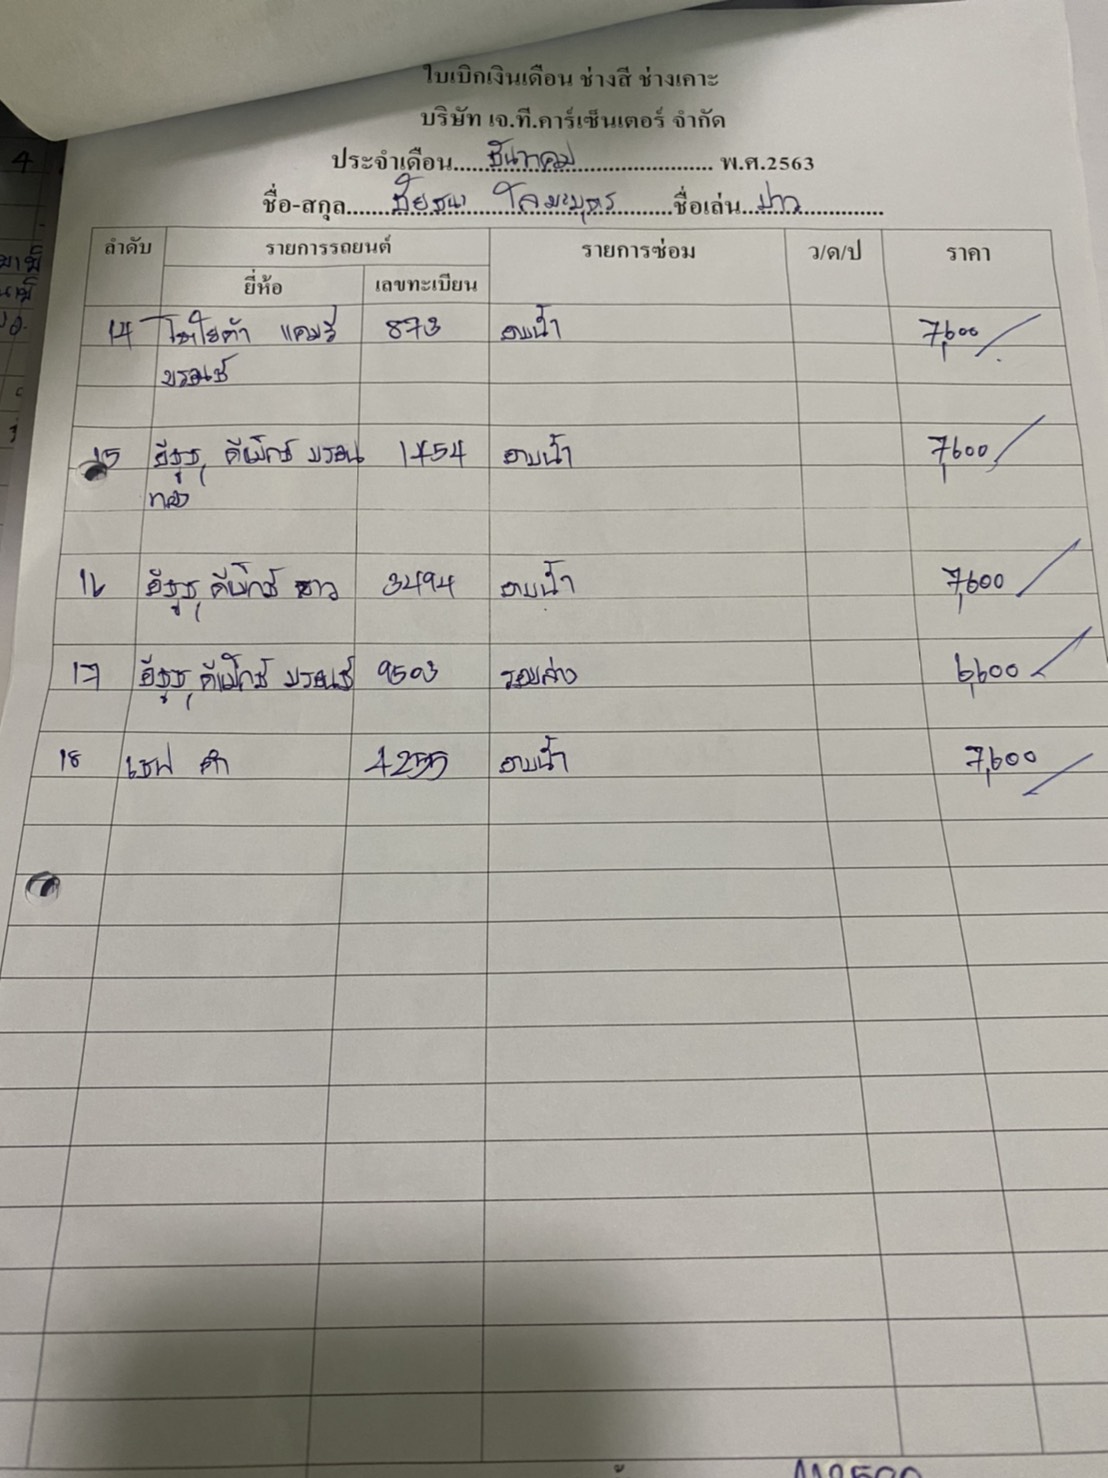 ใบเบิกเงินเดือน ช่างสี ช่างเคาะ
บริษัท เจ.ที.คาร์เซ็นเตอร์ จำกัด
ประจำเดือน.....ธันวาคม..... พ.ศ.2563
ชื่อ-สกุล.....ชัยธนา.....ชื่อเล่น.....
ลำดับ รายการรถยนต์ รายการซ่อม ว/ด/ป ราคา
ยี่ห้อ เลขทะเบียน
14 โตโยต้า แคมรี่ 873 อาบน้ำ 7,600
บรอนซ์
15 อีซูซุ ดีแม็กซ์ บรอน 1454 อาบน้ำ 7,600
ทอง
16 อีซูซุ ดีแม็กซ์ ขาว 3494 อาบน้ำ 7,600
17 อีซูซุ ดีแม็กซ์ บรอนซ์ 9503 รอบล่าง 6,600
18 เชฟ ดำ 4255 อาบน้ำ 7,600